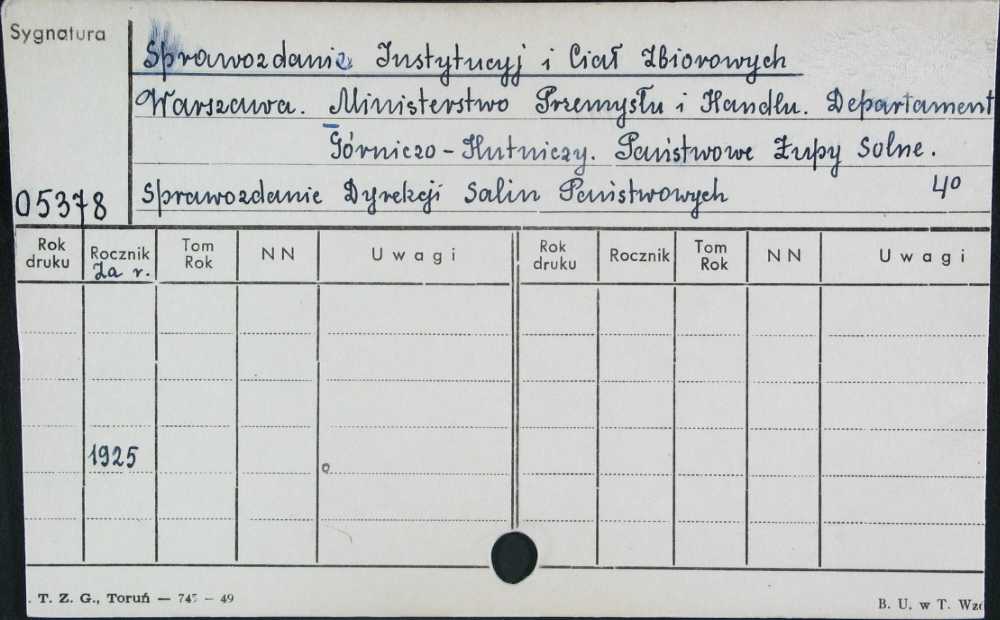 Sygnatura
Sprawozdanie Instytucyj i Ciał Zbiorowych
Warszawa. Ministerstwo Przemysłu i Handlu. Departament
Górniczo-Hutniczy. Państwowe Żupy Solne.
05378 Sprawozdanie Dyrekcji Salin Państwowych 4º
Rok druku Rocznik Tom Rok NN Uwagi Rok druku Rocznik Tom Rok NN Uwagi
Za r.
1925
. T. Z. G., Toruń — 745 – 49
B. U. w T.